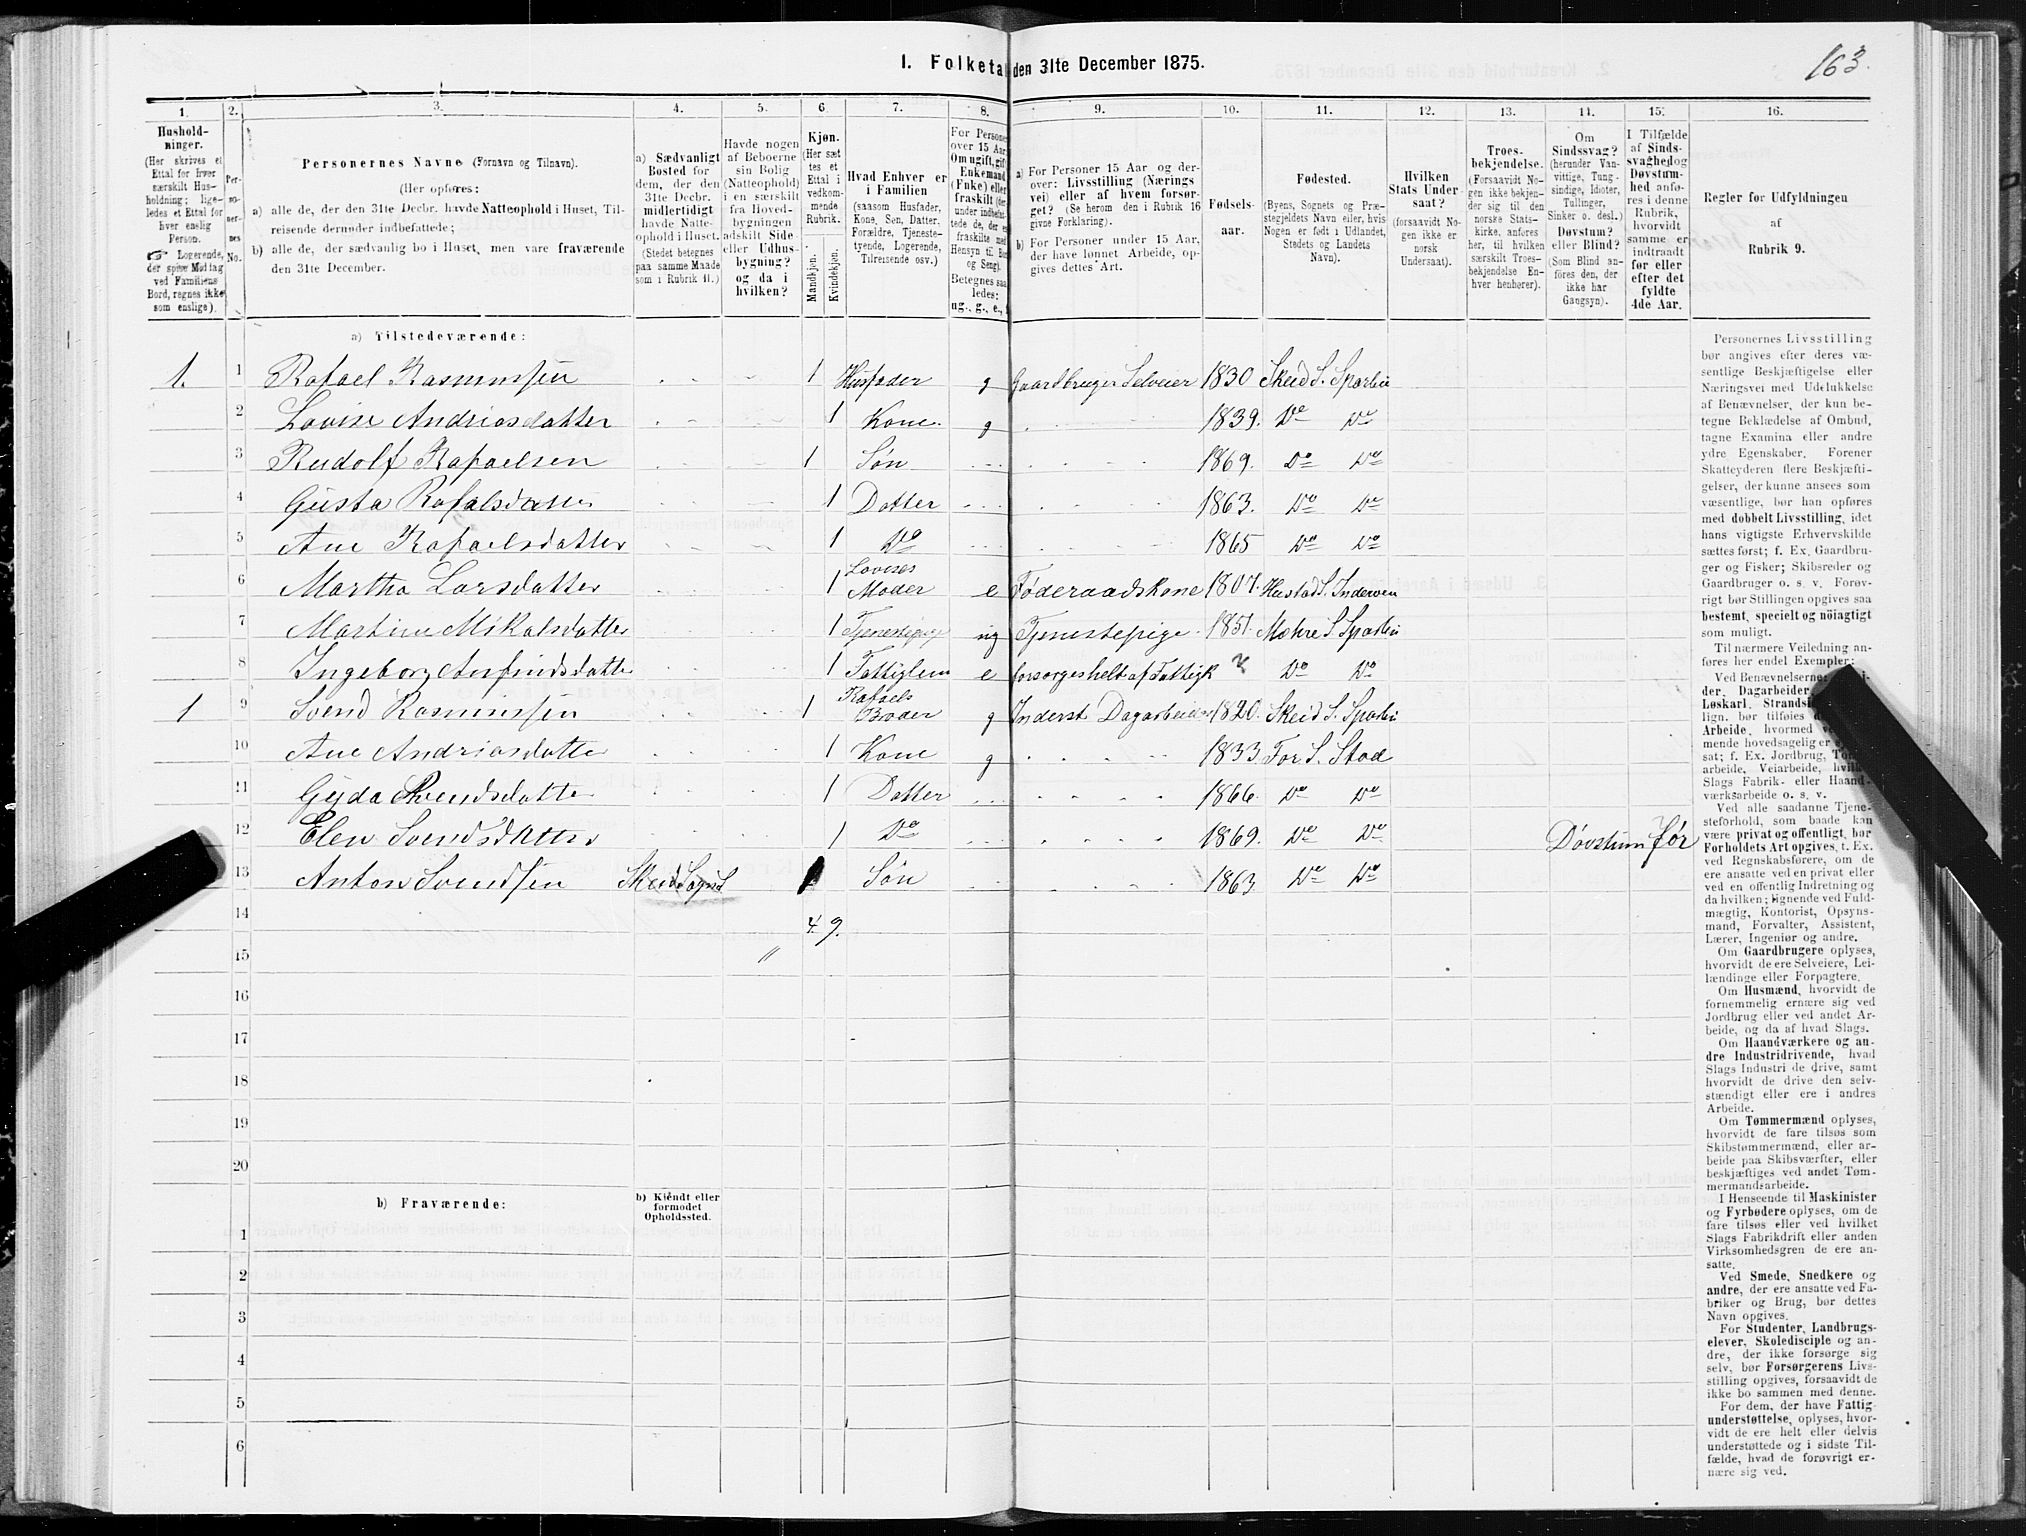 163.
I. Folketal den 31te December 1875.
1. 2. 3. 4. 5. 6. 7. 8. 9. 10. 11. 12. 13. 14. 15. 16.
Hushold-
ninger.
(Her skrives et
Ettal for hver
særskilt Hus-
holdning; lige-
ledes et Ettal for
hver enslig
Person.
☞ Logerende,
der spise Middag
ved Familiens
Bord, regnes ikke
som enslige).
Per-
so-
ner-
nes
No.
Personernes Navne (Fornavn og Tilnavn).
(Her opføres:
a) alle de, der den 31te Decbr. havde Natteophold i Huset, Til-
reisende derunder indbefattede;
b) alle de, der sædvanlig bo i Huset, men vare fraværende
den 31te December.
a) Sædvanligt
Bosted for
dem, der den
31te Decbr.
midlertidigt
havde Natte-
ophold i Huset.
(Stedet betegnes
paa samme Maade
som i Rubrik 11.)
Havde nogen
af Beboerne
sin Bolig
(Natteophold)
i en særskilt
fra Hoved-
bygningen
adskilt Side-
eller Udhus-
bygning?
og da i
hvilken?
Kjøn.
(Her sæt
tes et
Ettal i
vedkom-
mende
Rubrik.
Mandkjøn.
Kvindekjøn.
Hvad Enhver er
i Familien
(saasom Husfader,
Kone, Søn, Datter,
Forældre, Tjeneste-
tyende, Logerende,
Tilreisende osv.)
For Persone
over 15 Aar
Om ugift, gift
Enkemand
(Enke) eller
fraskilt
Betegnes saa
ledes:
ug., g., e.,
a) For Personer 15 Aar og der-
over: Livsstilling (Nærings
vei) eller af hvem forsør-
get? (Se herom den i Rubrik 16
givne Forklaring).
b) For Personer under 15 Aar,
der have lønnet Arbeide, op-
gives dettes Art.
Fødsels-
aar.
Fødested.
(Byens, Sognets og Præ-
stegjeldets Navn eller, hvis
Nogen er født i Udlandet,
Stedets og Landets
Navn).
Hvilken
Stats Under-
saat?
(forsaavidt No-
gen ikke er
norsk
Undersaat).
Troes-
bekjendelse.
(Forsaavidt No-
gen ikke bekjen-
der sig til den
norske Stats-
kirke, anføres
her, til hvilken
særskilt Troes-
bekjendelse En-
hver henhører).
Om
Sindssvag?
(herunder Van-
vittige, Tung-
sindige, Idioter,
Tullinger,
Sinker o. desl.)
Døvstum?
eller Blind?
(Som Blind an-
føres den, der
ikke har
Gangsyn).
I Tilfælde
af Sinds-
svaghed og
Døvstum-
hed anfø-
res i denne
Rubrik,
hvorvidt
samme er
indtraadt
før eller
efter det
fyldte
4de Aar.
Regler for Udfyldningen
af
Rubrik 9.
a) Tilstedeværende:
1. 1 Rafael Rasmussen 1 Husfader g Gaardbruger Selveier 1830 Skeid S. Sparbu
2 Lovise Andriasdatter 1 Kone g 1839. Do Do
3 Rudolf Rafaelsen 1 Søn 1869. Do Do
4 Gusta Rafalsdatter 1 Datter 1863. Do Do
5 Ane Rafaelsdatter 1 Do 1865 Do Do
6 Martha Larsdatter 1 Lovises Moder e Føderaadskone 1807. Hustad S. Inderøen
7 Martine Mikalsdatter 1 Tjenestepige ug Tjenestepige 1851. Mohre S Sparbu
8 Ingeborg Arnfindsdatter 1 Fattiglem e forsørges helt af Fattigk ? Do Do
1 9 Svend Rasmussen 1 Rafaels Broder g Inderst Dagarbeider 1820. Skeid S. Sparbu
10 Ane Andriasdatte 1 Kone g 1833. For S. Stod
11 Gyda Svendsdatte 1 Datter 1866. Do Do
12 Elen Svendsdatter 1 Do 1869. Do Do Døvstum før
13 Anton Svendsen Skeid Sogns 1 Søn 1863 Do Do
14 4. 9.
15 "
16
17
18
19
20
b) Fraværende:
b) Kjendt eller
formodet
Opholdssted.
1
2
3
4
5
6
Personernes Livsstilling
bør angives efter deres væ-
sentlige Beskjæftigelse eller
Næringsvei med Udelukkelse
af Benævnelser, der kun be-
tegne Beklædelse af Ombud,
tagne Examina eller andre
ydre Egenskaber. Forener
Skatteyderen flere Beskjæfti-
gelser, der kunne ansees som
væsentlige, bør han opføres
med dobbelt Livsstilling, idet
hans vigtigste Erhvervskilde
sættes først; f. Ex. Gaardbru-
ger og Fisker; Skibsreder og
Gaardbruger o. s. v. Forøv-
rigt bør Stillingen opgives saa
bestemt, specielt og nöiagtigt
som muligt.
Til nærmere Veiledning an-
føres her endel Exempler:
Ved Benævnelserne:
der, Dagarbeider
Løskarl, Strandsi
lign. bør tilføies
Arbeide, hvormed
mende hovedsagelig er
sat; f. Ex. Jordbrug,
arbeide, Veiarbeide, hvilk
Slags Fabrik- eller Haand-
værksarbeide o. s. v.
Ved alle saadanne Tjene-
steforhold, som baade kan
være privat og offentligt, bør
Forholdets Art opgives, t. Ex.
ved Regnskabsførere, om de
ere ansatte ved en privat eller
ved en offentlig Indretning og
da hvilken; lignende ved Fuld-
mægtig, Kontorist, Opsyns-
mand, Forvalter, Assistent,
Lærer, Ingeniør og andre.
Om Gaardbrugere oplyses,
hvorvidt de ere Selveiere, Lei-
lændinge eller Forpagtere.
Om Husmænd, hvorvidt de
fornemmelig ernære sig ved
Jordbrug eller ved andet Ar-
beide, og da af hvad Slags.
Om Haandværkere og an-
dre Industridrivende, hvad
Slags Industri de drive, samt
hvorvidt de drive den selv-
stændigt eller ere i andres
Arbeide.
Om Tømmermænd oplyses,
hvorvidt de fare tilsøs som
Skibstømmermænd, eller ar-
beide paa Skibsværfter, eller
beskjæftiges ved andet Tøm-
mermandsarbeide.
I Henseende til Maskinister
og Fyrbødere oplyses, om de
fare tilsøs eller ved hvilket
Slags Fabrikdrift eller anden
Virksomhedsgren de ere an-
satte.
Ved Smede, Snedkere og
andre, der ere ansatte ved Fa-
briker og Brug, bør dettes
Navn opgives.
For Studenter, Landbrugs-
elever, Skoledisciple og an-
dre, der ikke forsørge sig
selv, bør Forsørgerens Livs-
stilling opgives, forsaavidt de
ikke bo sammen med denne.
For dem, der have Fattig-
understøttelse, oplyses, hvor-
vidt de ere helt eller delvis
understøttede og i sidste Til-
fælde, hvad de forøvrigt er-
nære sig ved.